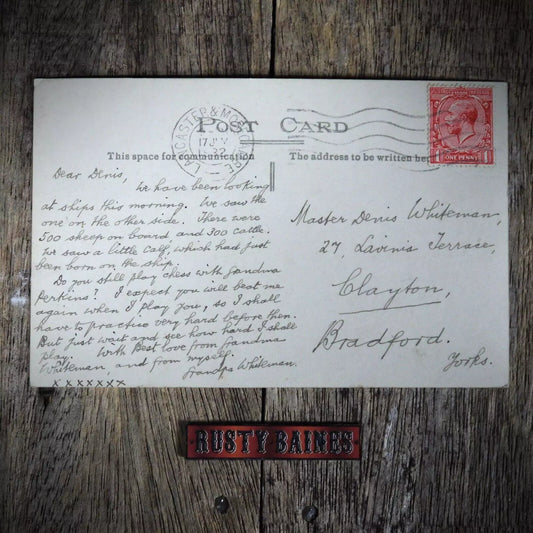 POST CARD
LANCASTER & MORECAMBE
17 JLY
32
ONE PENNY
This space for communication
The address to be written here
Dear Denis,
We have been looking
at ships this morning. We saw the
one on the other side. There were
500 sheep on board, and 300 cattle.
We saw a little calf, which had just
been born on the ship.
Do you still play chess with Grandma
Perkins? I expect you will beat me
again when I play you, so I shall
have to practice very hard before then.
But just wait and see how hard I shall
play. With Best love from Grandma
Whiteman, and from myself.
Grandpa Whiteman.
x x x x x x x
Master Denis Whiteman,
27, Lavinia Terrace,
Clayton,
Bradford.
Yorks.
RUSTY BAINES